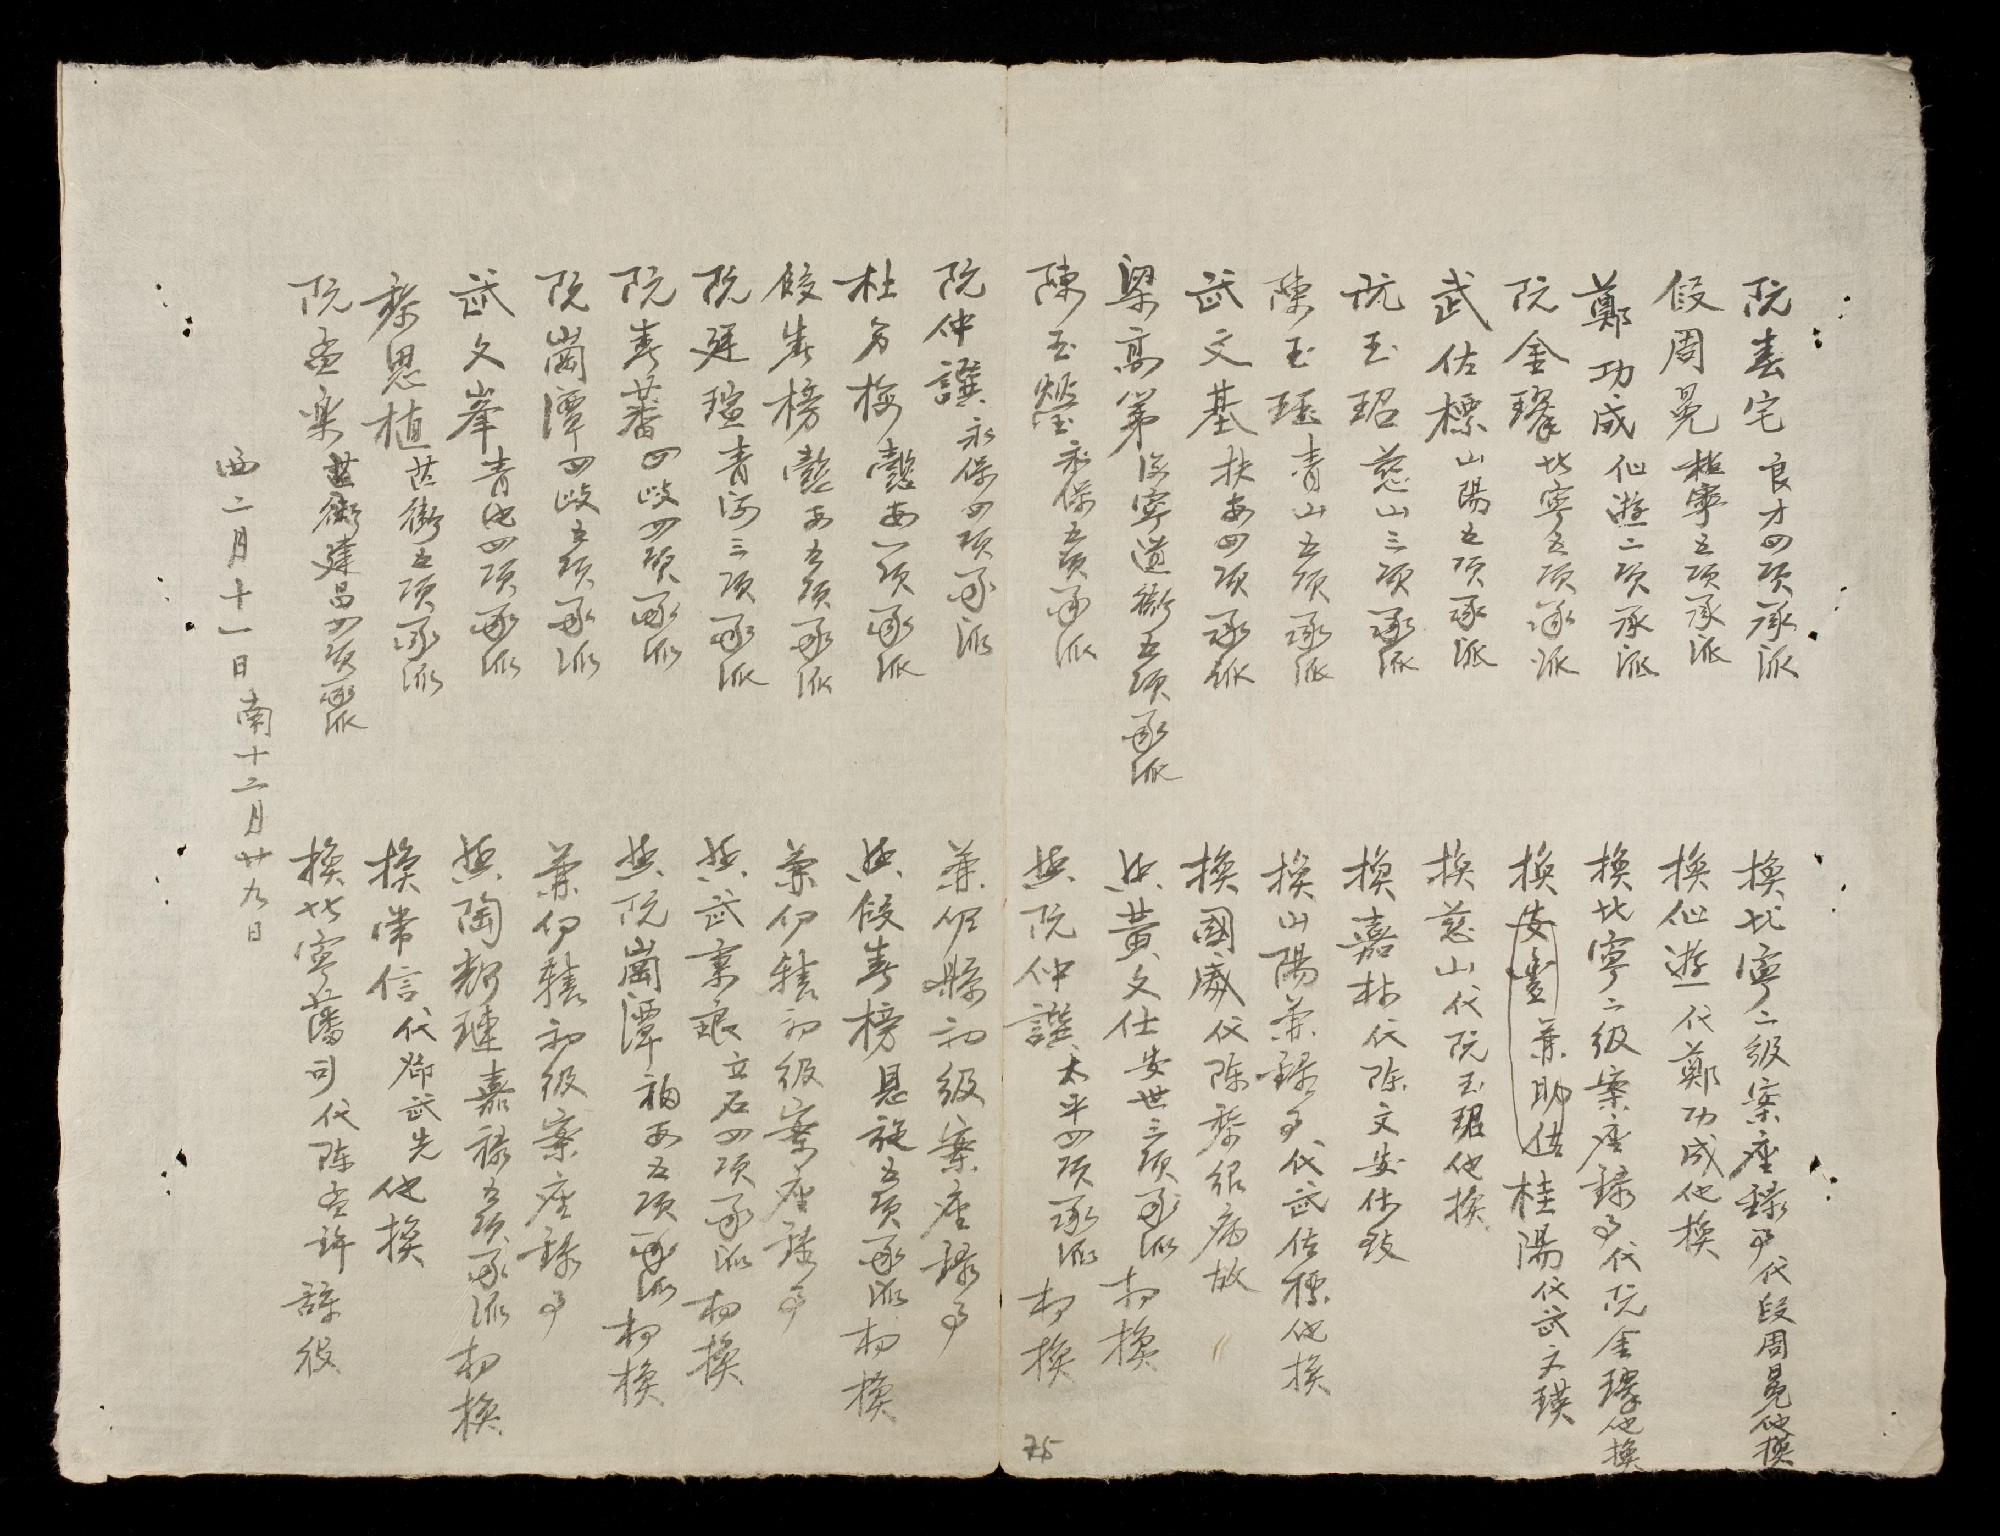 阮春宅 良才四項承派 換北寧二級案座錄事代段周晃他換
段周晃 超寧五項承派 換仙遊代鄭功成他換
鄭功成 仙遊二項承派 換北寧二級案座錄事代阮金璆他換
阮金璆 北寧五項承派 換安豐兼助佐桂陽代武文瑛
武佐標 山陽五項承派 換慈山代阮玉玿他換
阮玉玿 慈山三項承派 換嘉林代陳文安休致
陳玉珏 青山五項承派 換山陽兼錄事代武佐標他換
武文基 扶安四項承派 換國威代陳黎紹病故
梁高第 海寧道衙五項承派 與黃文仕安世三項承派相換
陳玉瑩 永保五項承派 與阮仲譔太平四項承派相換
阮仲譔 永保四項承派 兼伊縣初級案座錄事
杜名梅 懿安一項承派 與段春榜恩施五項承派相換
段春榜 懿安五項承派 兼伊轄初級案座錄事
阮廷瑄 青河三項承派 與武秉銀立石四項承派相換
阮春蕃 四岐四項承派 與阮崗潭福安五項承派相換
阮崗潭 四岐五項承派 兼伊轄初級案座錄事
武文峯 青池四項承派 與陶輝璉嘉祿五項承派相換
黎思植 萢衙五項承派 換常信代鄧武先他換
阮孟樂 萢衙建昌四項承派 換北寧藩司代陳孟鉾辭役
西二月十一日南十二月廿九日
75